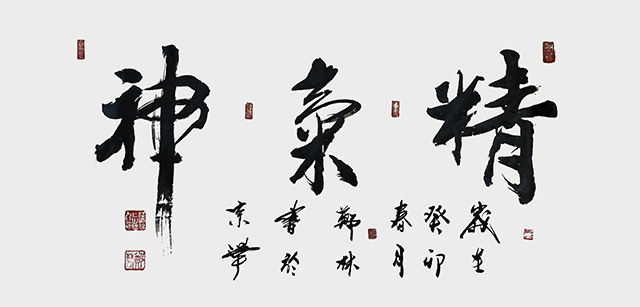 精氣神
歲在
癸卯
春月
鄭林
書於
京華